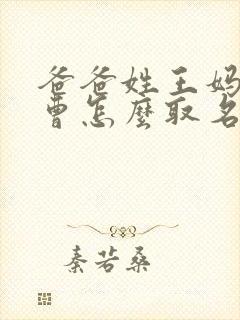 爸爸姓王妈
曹怎麼取名
秦若桑